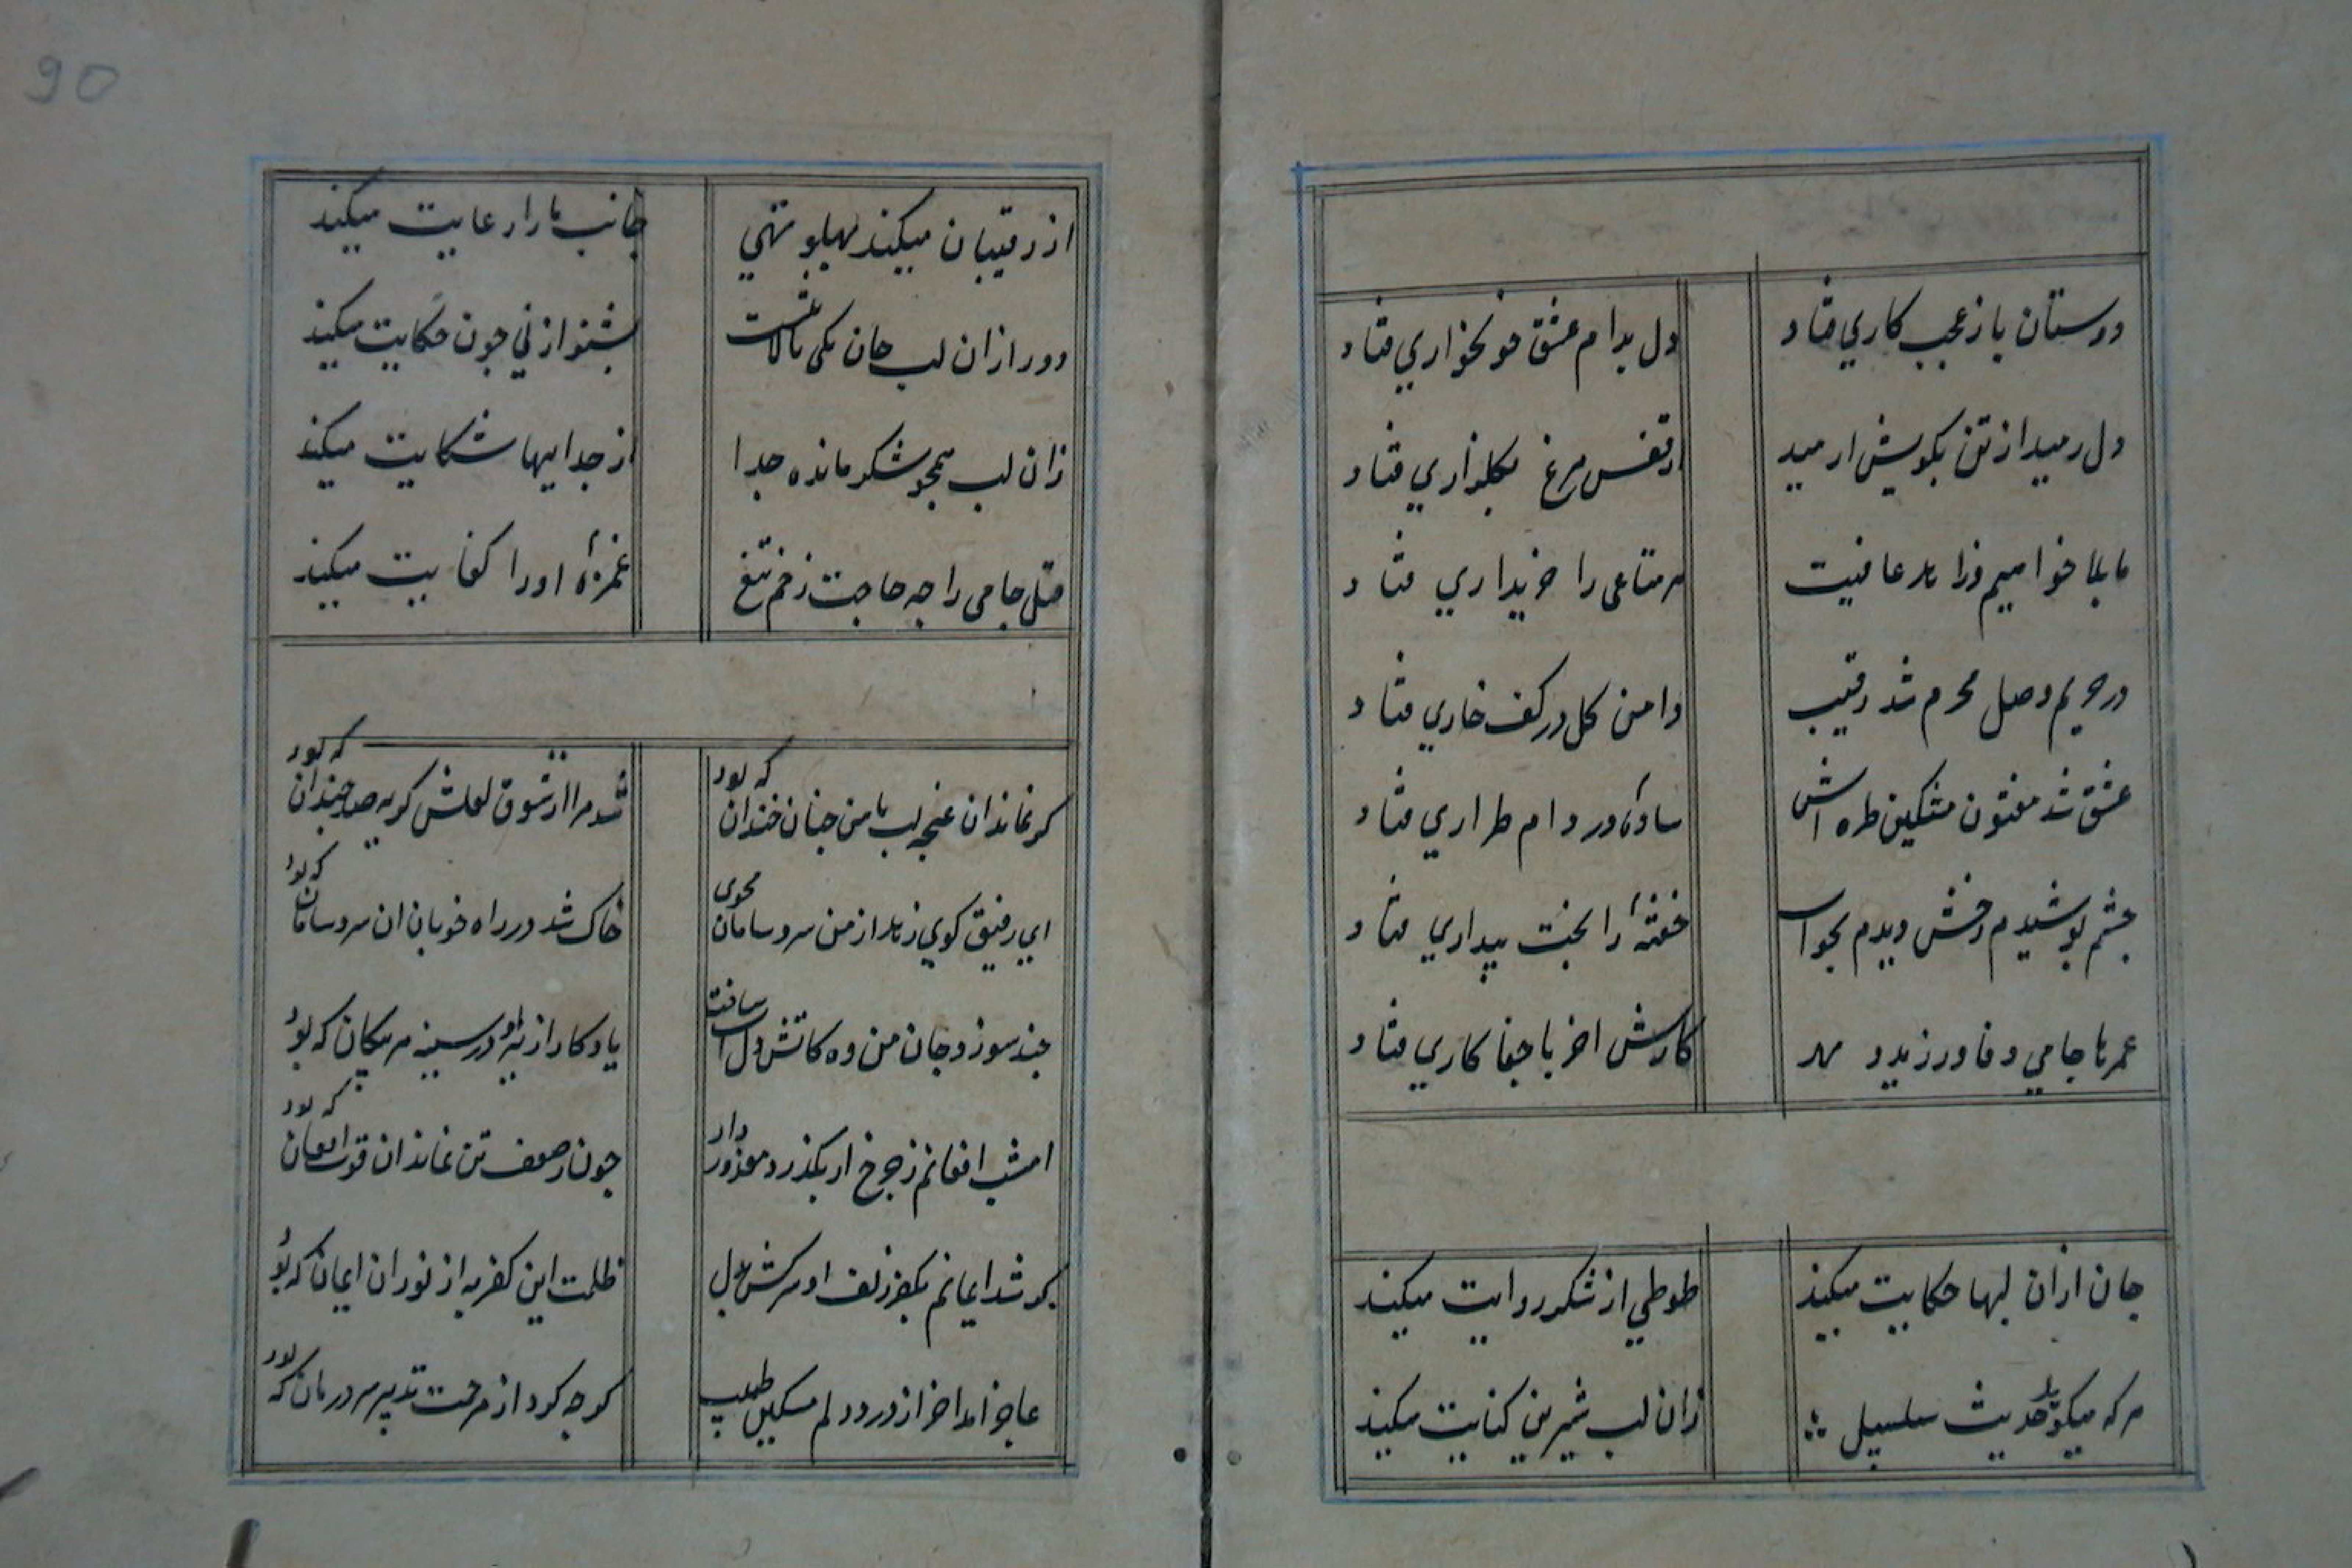 دوستان باز عجب کاري فتاد
دل بدام عشق خونخواري فتاد
دل رمید از تن بکویش ارمید
از قفس مرغ بکلزاري فتاد
ما بلا خواهیم و زاهد عافیت
هر متاعی را خریداري فتاد
در حریم وصل محرم شد رقیب
دامن کل در کف خاري فتاد
عشق شد مفتون مشکین طره اش
سادهٔ در دام طراري فتاد
چشم پوشیدم رخش دیدم بخواب
خفتهٔ را بخت بیداري فتاد
عمرها جامي وفا ورزید و مهر
کارش اخر با جفا کاري فتاد
جان ازان لبها حکایت میکند
طوطي از شکر روایت میکند
هرکه میکوید حدیث سلسبیل
زان لب شیرین کنایت میکند
90
از رقیبان میکند پهلو تهي
جانب ما را رعایت میکند
دور ازان لب جان یکی نالانست
بشنو از ني جون حکایت میکند
زان لب همجو شکر مانده جدا
از جداییها شکایت میکند
قتل جامی را چه حاجت زخم تیغ
غمزهٔ او را کفایت میکند
کر نماند ان غنچه لب با من چنان خندان که بود
شد مرا از شوق لعلش کریه صد چندان که بود
اي رفیق کوي زهد از من سر و سامان مجوی
خاک شد در راه خوبان ان سر و سامان که بود
چند سوزد جان من وه کاتش دل اب ساخت
یادکار از تیر او در سینه هر پیکان که بود
امشب افغانم ز چرخ ار بکذرد معذور دار
جون ز ضعف تن نماند ان قوت افغان که بود
کر شد ایمانم بکفر زلف او سرکش بدل
ظلمت این کفر به از نور ان ایمان که بود
عاجز امد اخر از درد دلم مسکین طبیب
کر چه کرد از مرحمت تدبیر هر درمان که بود